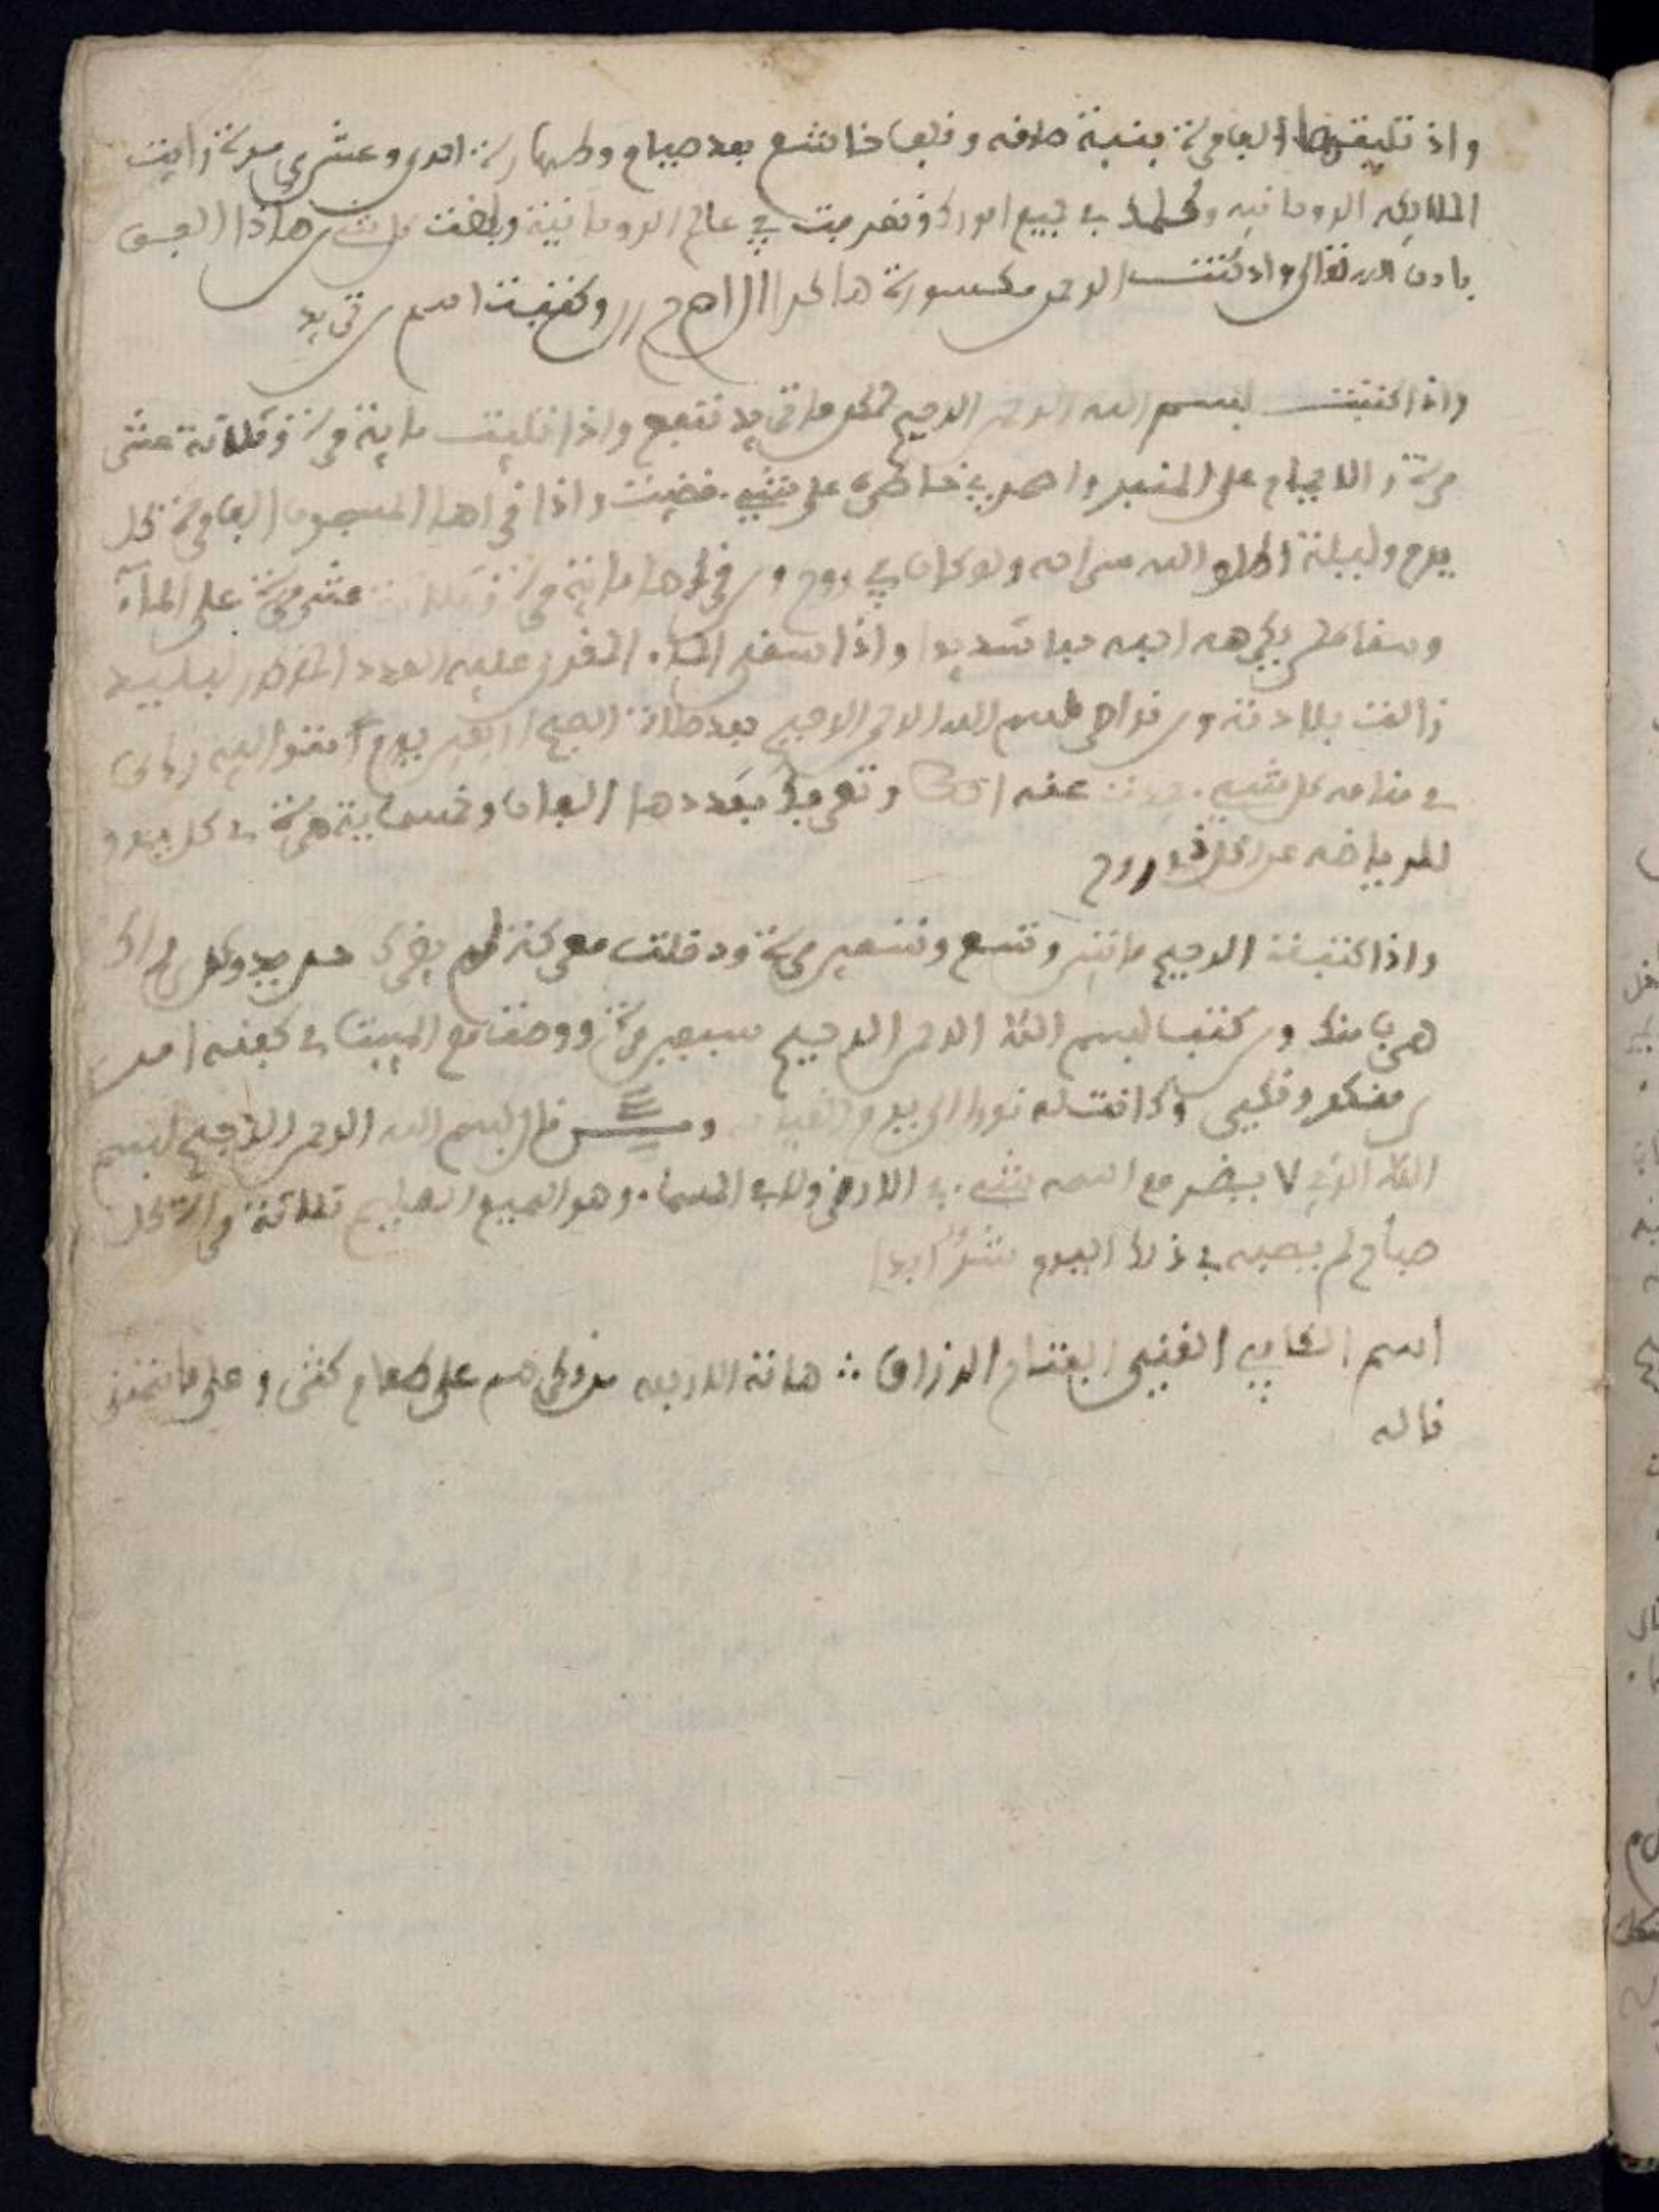 واذ تليتها الف مرة بنية صادقه وقلب خاشع بعد صيام وطهارة احدى وعشرين مرة زايت
الملايكه الروحانيه وكلمك في جميع امورك وتصرفت في عالم الروحانية وبلغت كل شي هاذا البسق
باذن الله تعالى واذ كتبت الرحمن مكسورة هاكدا ا ل ر ا ح م ن وكتبت اسم من تريد
واذا كتبت بسم الله الرحمن الرحيم لكل ما تريد تنجع واذا تليت ماية مرة وثلاثة عشر
مرة والامام على المنبر واضمر في خاطره على شيء قضيت واذا قراها المسجون الف مرة كل
يوم وليلة اطلق الله سراحه ولو كان في روح ومن قراها ماية مرة وثلاثة عشر مرة على الماء
وسقا من يكرهه احبه حبا شديدا واذا سقى الماء المقرى عليه العدد المذكور لبليد
زالت بلادته ومن قرا بسم الله الرحمن الرحيم بعد صلاة الصبح اربعين يوم
في منامه كل شيء عنه وتقرا بعددها الفا وخمسماية مرة في كل يوم
للرياضه عن كل ذي روح
واذا كتبت الرحيم مايتين وتسع وتسعين مرة ودخلت معركة لم يضرك حديد وكل من راك
هرب منك ومن كتب بسم الله الرحمن الرحيم سبعين مرة ووضعت مع الميت في كفنه امن
من منكر ونكير وكانت له نورا الى يوم القيامه ومن قال بسم الله الرحمن الرحيم بسم
الله الذي لا يضر مع اسمه شيء في الارض ولا في السماء وهو السميع العليم ثلاثة مرات كل
صباح لم يصبه في ذلك اليوم شرا ابدا
اسم الكافي الغني الفتاح الرزاق ∴ هاته الاربعه من ذكرهم على طعام كثر وعلى ما تتمنى
ناله